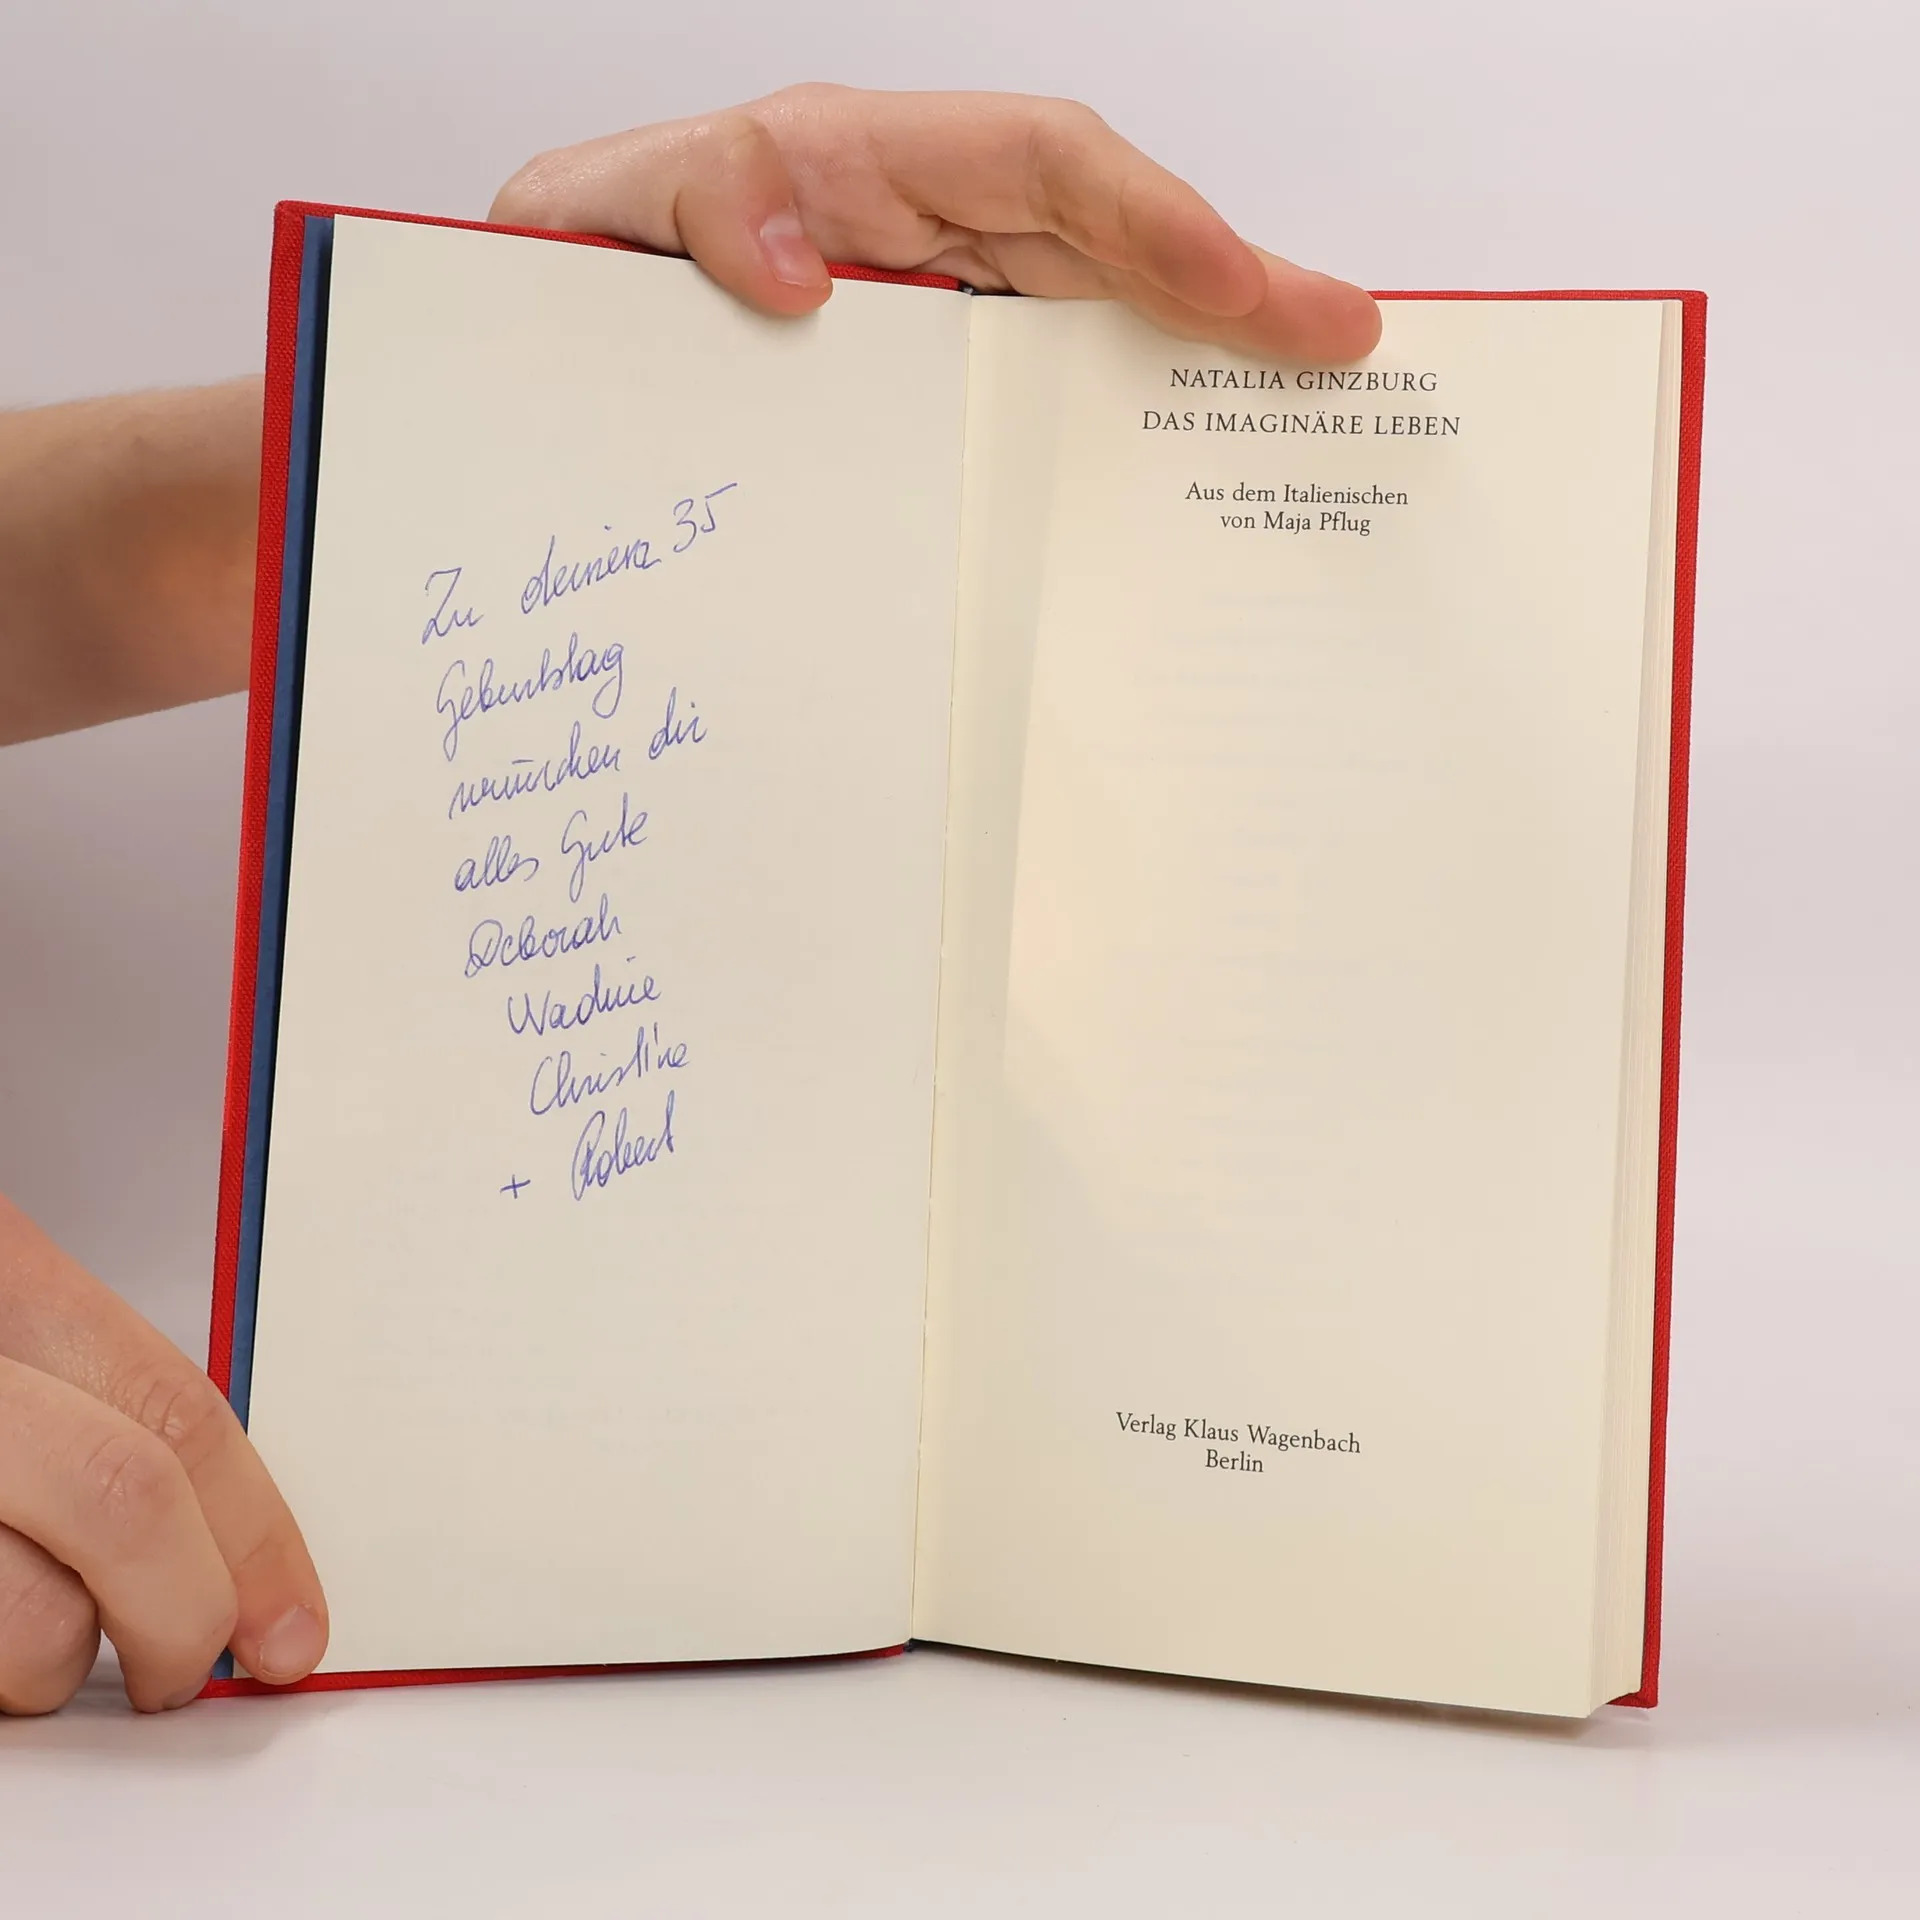 Zu deinem 35
Geburtstag
wünschen dir
alles Gute
Deborah
Nadine
Christine
+ Robert
NATALIA GINZBURG
DAS IMAGINÄRE LEBEN
Aus dem Italienischen
von Maja Pflug
Verlag Klaus Wagenbach
Berlin